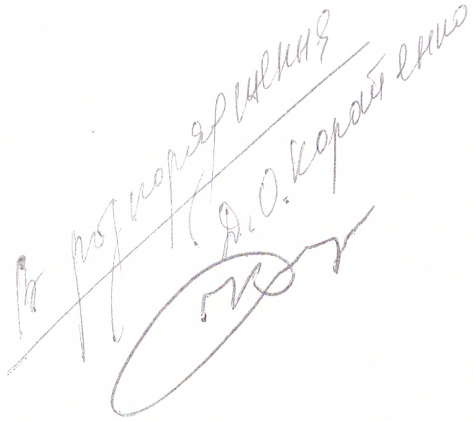 В розпорядження
Д.О. Коратенко